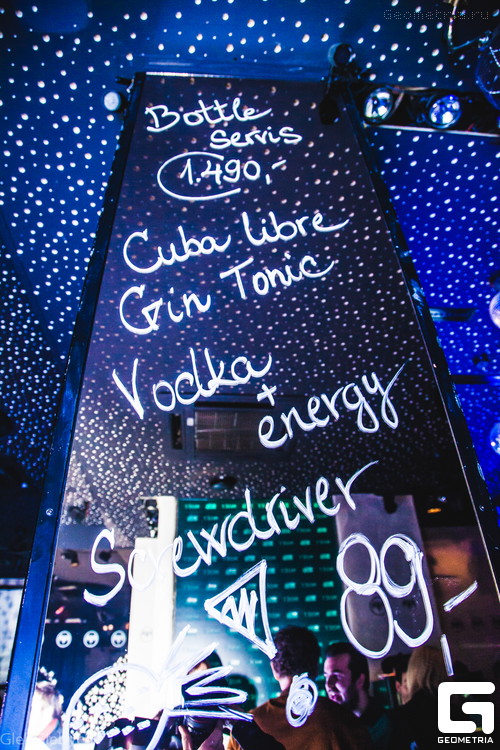 Geometria.ru
Bottle
servis
1.490,-
Cuba libre
Gin Tonic
Vodka
+
energy
Screwdriver
89,-
GEOMETRIA